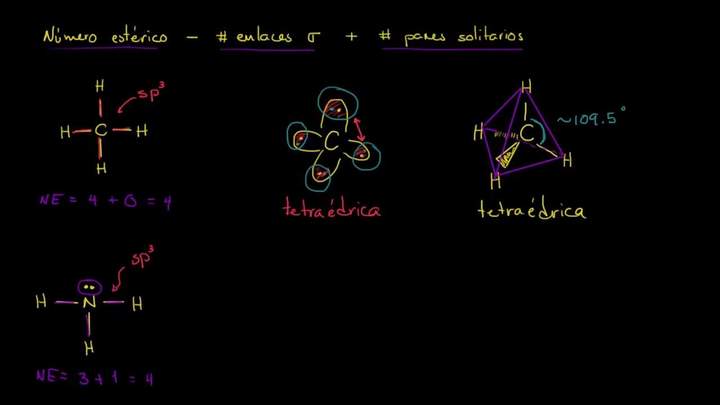 Número estérico - # enlaces σ + # pares solitarios
H
sp³
H C H
H
NE = 4 + 0 = 4
C
tetraédrica
H
H C H
H
~109.5°
tetraédrica
sp³
H N H
H
NE = 3 + 1 = 4